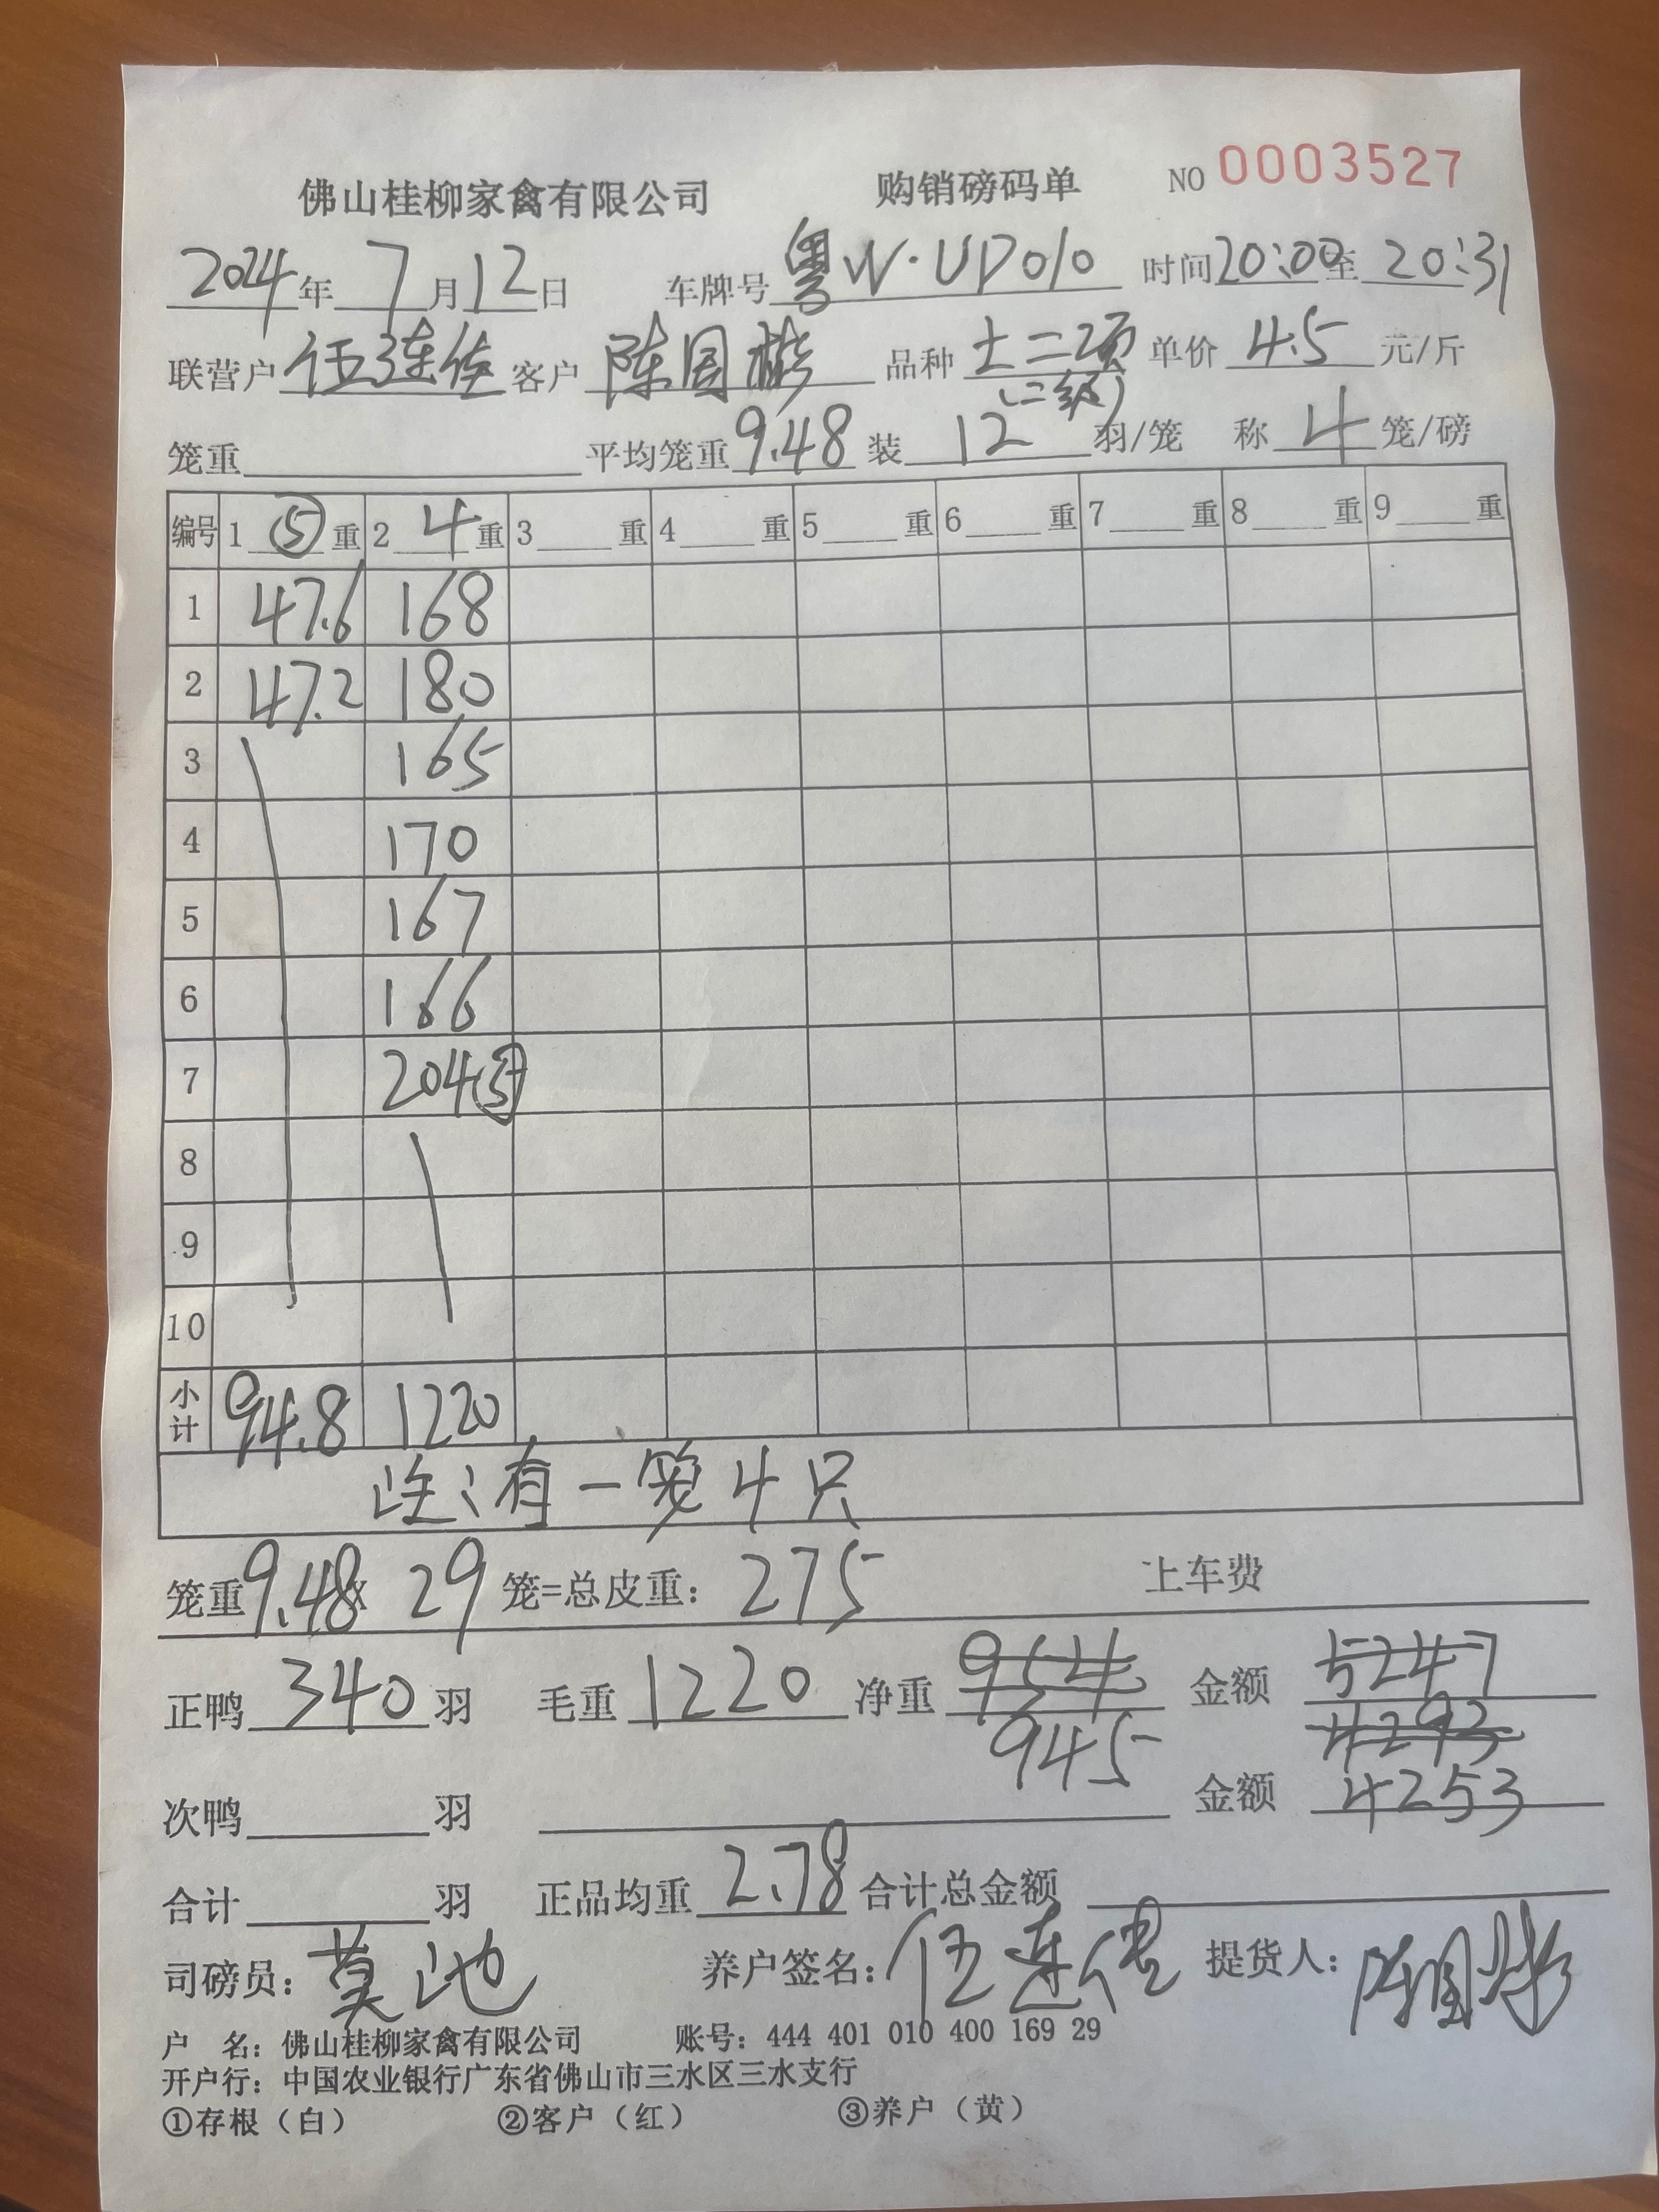 佛山桂柳家禽有限公司 购销磅码单 NO 0003527
2024年7月12日 车牌号粤W·UD010 时间20:00至20:31
联营户 伍连佳 客户 陈国彬 品种 土二项(二级) 单价 4.5 元/斤
笼重 平均笼重9.48 装 12 羽/笼 称 4 笼/磅
编号 1 ⑤ 重 2 4 重 3 重 4 重 5 重 6 重 7 重 8 重 9 重
1 47.6 168
2 47.2 180
3 165
4 170
5 167
6 166
7 204⑤
8
9
10
小计 94.8 1220
注:有一笼4只
笼重9.48X 29 笼=总皮重: 275 上车费
正鸭 340 羽 毛重 1220 净重 954 金额 5247
945 4293
次鸭 羽 金额 4253
合计 羽 正品均重 2.78 合计总金额
司磅员: 莫池 养户签名: 伍连佳 提货人: 陈国彬
户 名: 佛山桂柳家禽有限公司 账号: 444 401 010 400 169 29
开户行: 中国农业银行广东省佛山市三水区三水支行
①存根(白) ②客户(红) ③养户(黄)